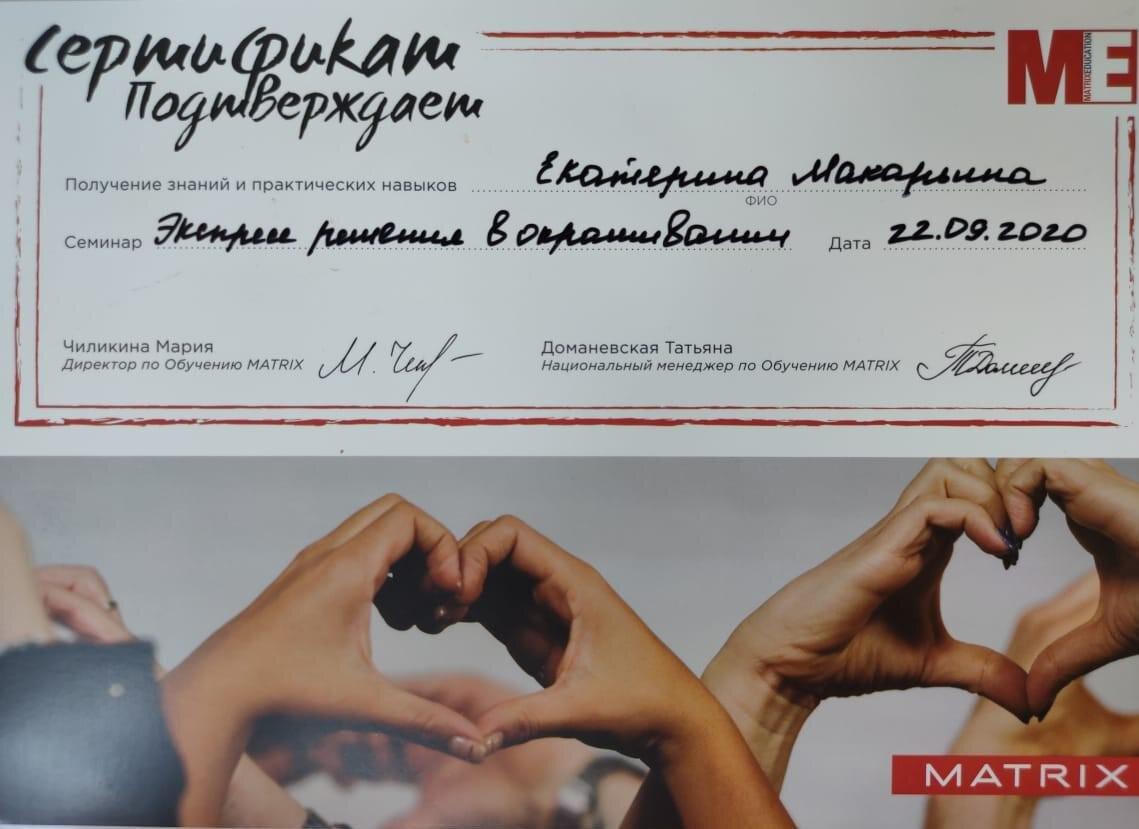 Сертификат
Подтверждает
ME
MATRIXEDUCATION
Получение знаний и практических навыков Екатерина Макарьина
ФИО
Семинар Экспресс решения в окрашивании Дата 22.09.2020
Чиликина Мария
Директор по Обучению MATRIX
Доманевская Татьяна
Национальный менеджер по Обучению MATRIX
MATRIX